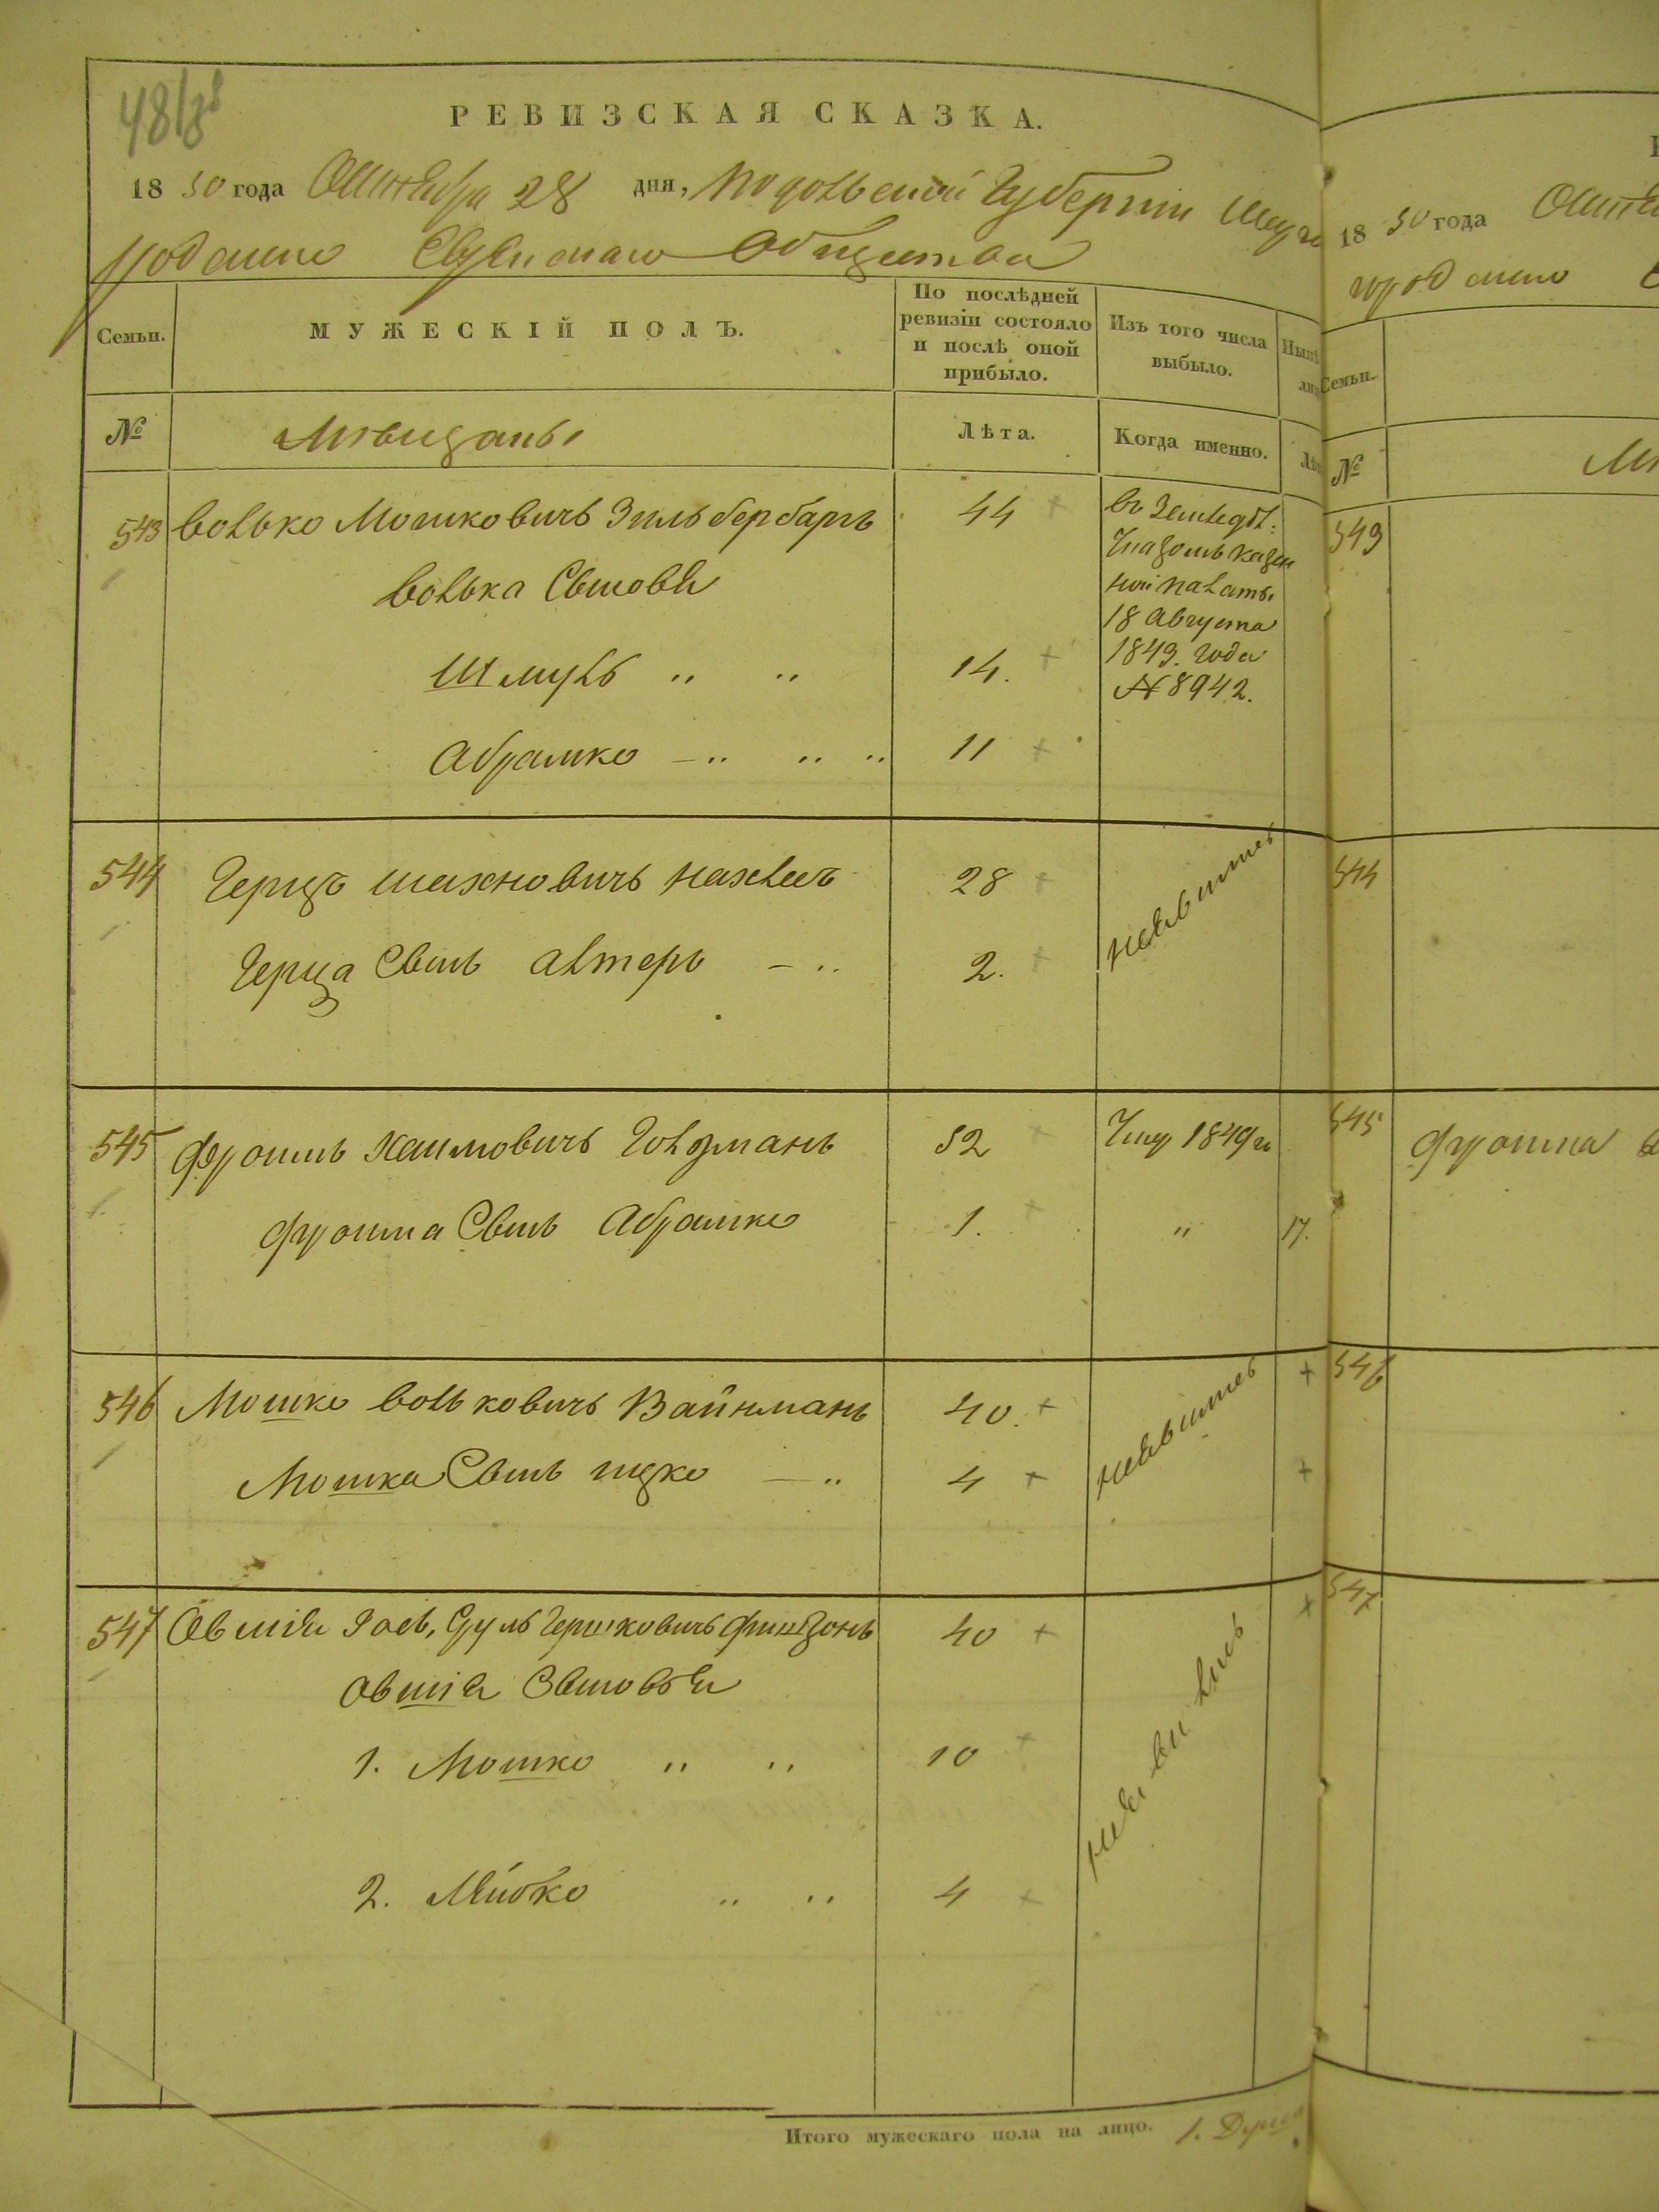 48
РЕВИЗСКАЯ СКАЗКА.
18 50 года Октября 28 дня, Подольской Губерніи
Еврейскаго Общества
Семьи.
МУЖЕСКІЙ ПОЛЪ.
По послѣдней ревизіи состояло и послѣ оной прибыло.
Изъ того числа выбыло.
№
Мѣщаны
Лѣта.
Когда именно.
543 Волько Мошковичъ Зильбербаргъ 44
въ Земледѣл:
Указомъ Казен
ной палаты
18 Августа
1849. года
№ 8942.
Волька Сыновья
Шмуль " " 14.
Абрамко — " " " 11
544 Герцъ Шахновичъ Нахлесъ 28
неявились
Герца Сынъ Алтеръ — " 2.
545 Фроимъ Хаимовичъ Голдманъ 52 Умер 1849 го
Фроима Сынъ Абрамко 1. " 17.
546 Мошко Вольковичъ Вайнманъ 40.
неявились
Мошка Сынъ Ицко — " 4
547 Овшія Іосъ, Сруль Гершковичъ 40
неявились
Овшія Сыновья
1. Мошко " " 10
2. " " 4
Итого мужескаго пола на лицо. 1. Душа
18 50 года
Семьи.
№
543
544
545 Фроима
546
547